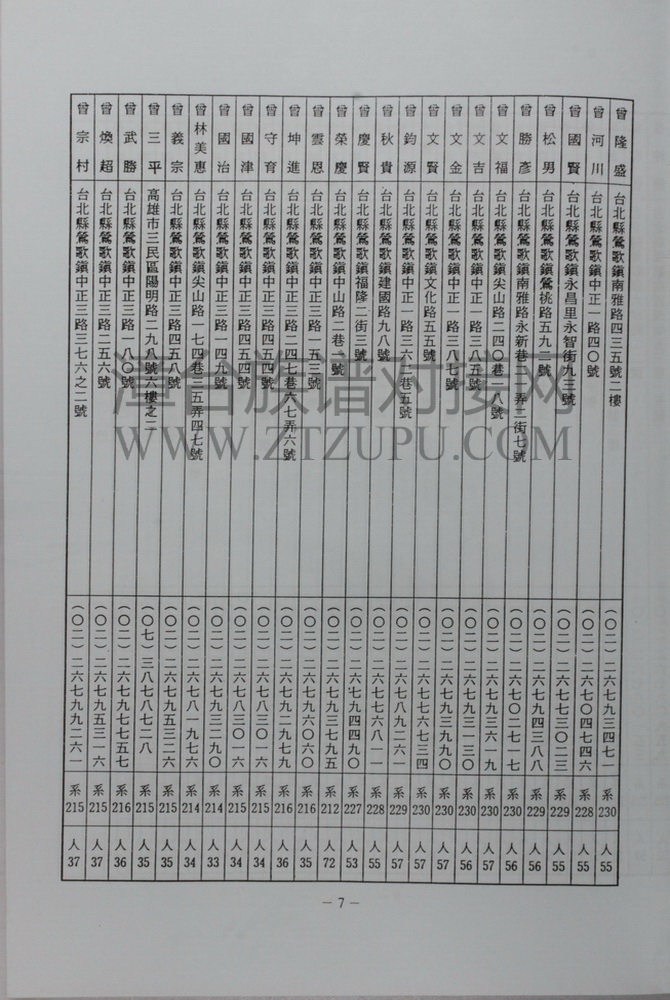 曾隆盛 台北縣鶯歌鎮南雅路四三五號二樓 (〇二)二六七九三四七一 系230 人55
曾河川 台北縣鶯歌鎮中正一路四〇號 (〇二)二六七〇四七四六 系228 人55
曾國賢 台北縣鶯歌鎮永昌里永智街九三號 (〇二)二六七七三〇二三 系229 人55
曾松男 台北縣鶯歌鎮鶯桃路五九二號 (〇二)二六七九四三八八 系229 人56
曾勝彥 台北縣鶯歌鎮南雅路永新巷二八弄二街七號 (〇二)二六七〇二七一七 系230 人56
曾文福 台北縣鶯歌鎮尖山路二四〇巷一八號 (〇二)二六七九三六一九 系230 人57
曾文吉 台北縣鶯歌鎮中正一路三八五號 (〇二)二六七九三一三〇 系230 人56
曾文金 台北縣鶯歌鎮中正一路三八七號 (〇二)二六七九三九九〇 系230 人57
曾文賢 台北縣鶯歌鎮文化路五五號 (〇二)二六七七六七三四 系230 人57
曾鈞源 台北縣鶯歌鎮中正一路三六一巷五號 (〇二)二六七八九二六一 系229 人57
曾秋貴 台北縣鶯歌鎮建國路九八號 (〇二)二六七七六八一一 系228 人55
曾慶賢 台北縣鶯歌鎮福隆二街三號 (〇二)二六七九四四九〇 系227 人53
曾榮慶 台北縣鶯歌鎮中山路二巷一號 (〇二)二六七九三七九五 系212 人72
曾雲恩 台北縣鶯歌鎮中正三路一五三號 (〇二)二六七九六〇六〇 系216 人35
曾坤進 台北縣鶯歌鎮中正三路二四七巷六七弄六號 (〇二)二六七九二九七九 系216 人36
曾守育 台北縣鶯歌鎮中正三路四五四號 (〇二)二六七八三〇一六 系215 人34
曾國津 台北縣鶯歌鎮中正三路四五四號 (〇二)二六七八三〇一六 系215 人34
曾國治 台北縣鶯歌鎮中正三路一四九號 (〇二)二六七九三二九〇 系214 人33
曾林美惠 台北縣鶯歌鎮尖山路一七四巷三五弄四七號 (〇二)二六七八一九七六 系214 人34
曾義宗 台北縣鶯歌鎮中正三路四五八號 (〇二)二六七九五三二六 系215 人35
曾三平 高雄市三民區陽明路二九八號六樓之二 (〇七)三八七八七二八 系215 人35
曾武勝 台北縣鶯歌鎮中正三路一八〇號 (〇二)二六七九七七五七 系216 人36
曾煥超 台北縣鶯歌鎮中正三路二五六號 (〇二)二六七九五三一六 系215 人37
曾宗村 台北縣鶯歌鎮中正三路三七六之二號 (〇二)二六七九九二六一 系215 人37
漳台族谱对接网
WWW.ZTZUPU.COM
—7—